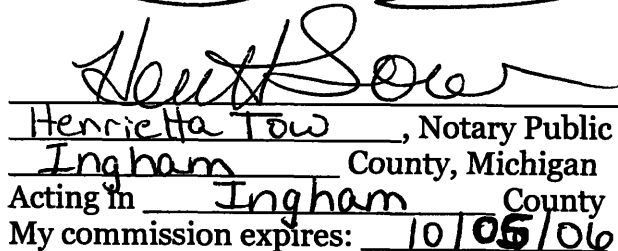 Henrietta Tow, Notary Public
Ingham County, Michigan
Acting in Ingham County
My commission expires: 10/05/06